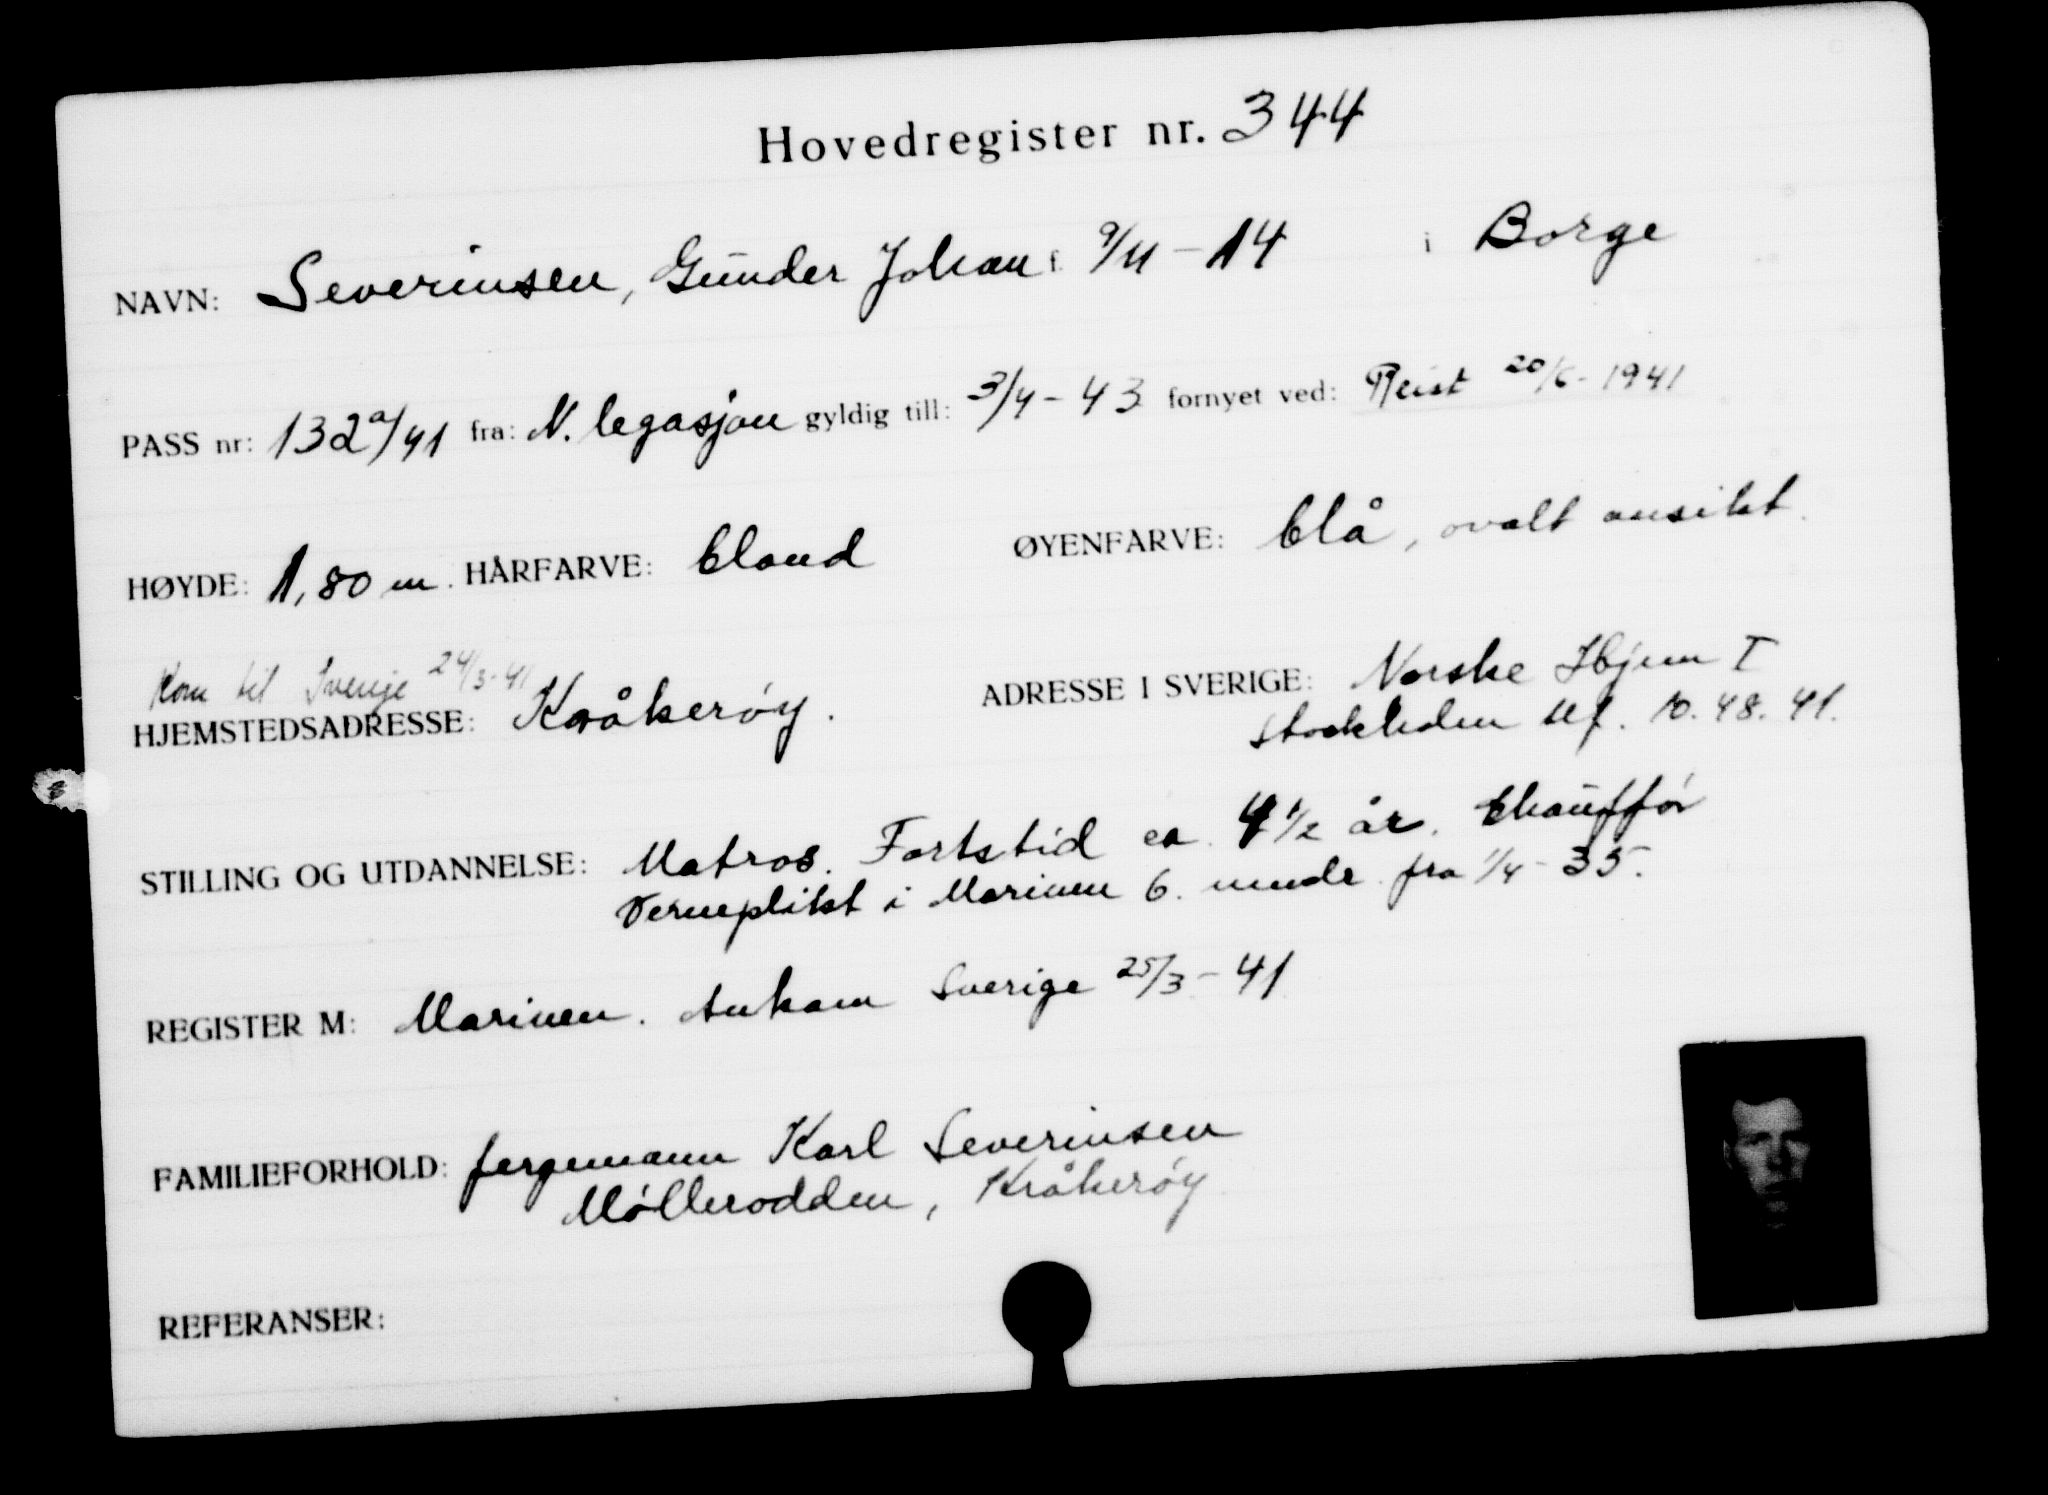 Hovedregister nr. 344
NAVN: Severinsen, Gunder Johan f. 9/11 - 14 i Borge
PASS nr: 132a/41 fra: N. legasjon gyldig till: 3/4 - 43 fornyet ved: 20/6 - 1941
HØYDE: 1,80 m. HÅRFARVE: blond ØYENFARVE: blå, ovalt ansikt.
Kom til Sverige 24/3-41
HJEMSTEDSADRESSE: Kråkerøy. ADRESSE I SVERIGE: Norske Hjem I
Stockholm tlf. 10.48.41.
STILLING OG UTDANNELSE: Matros. Fartstid ca. 4 1/2 år. Chauffør
Verneplikt i Marinen 6. mndr. fra 1/4 - 35.
REGISTER M: Marinen. Ankom Sverige 25/3 - 41
FAMILIEFORHOLD: fergemann Karl Severinsen
Møllerodden, Kråkerøy
REFERANSER: